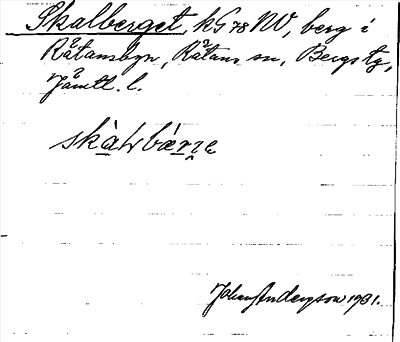 Skalberget, kG 78 NV, berg i
Råtansbyn, Råtans sn, Bergs tg,
Jämtl. l.
Johan Anderson 1931.